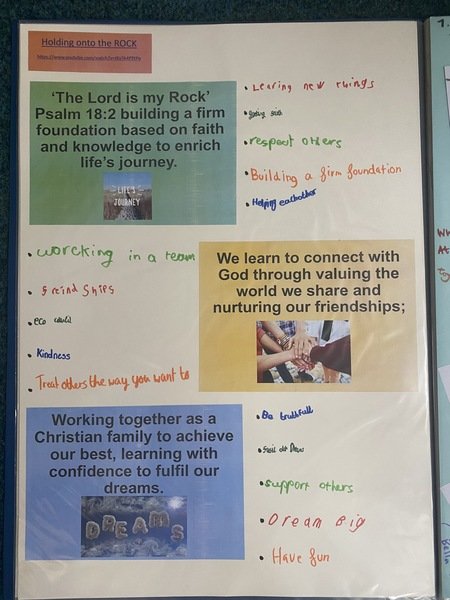 Holding onto the ROCK
'The Lord is my Rock'
Psalm 18:2 building a firm
foundation based on faith
and knowledge to enrich
life's journey.
LIFE'S
JOURNEY
• Learing new things
• respect others
• Building a firm foundation
• Helping eachother
• worcking in a team
• freind ships
• eco
• Kindness
• Treat others the way you want to
We learn to connect with
God through valuing the
world we share and
nurturing our friendships;
Working together as a
Christian family to achieve
our best, learning with
confidence to fulfil our
dreams.
DREAMS
• Be truthfull
• support others
• Dream Big
• Have fun
Bella